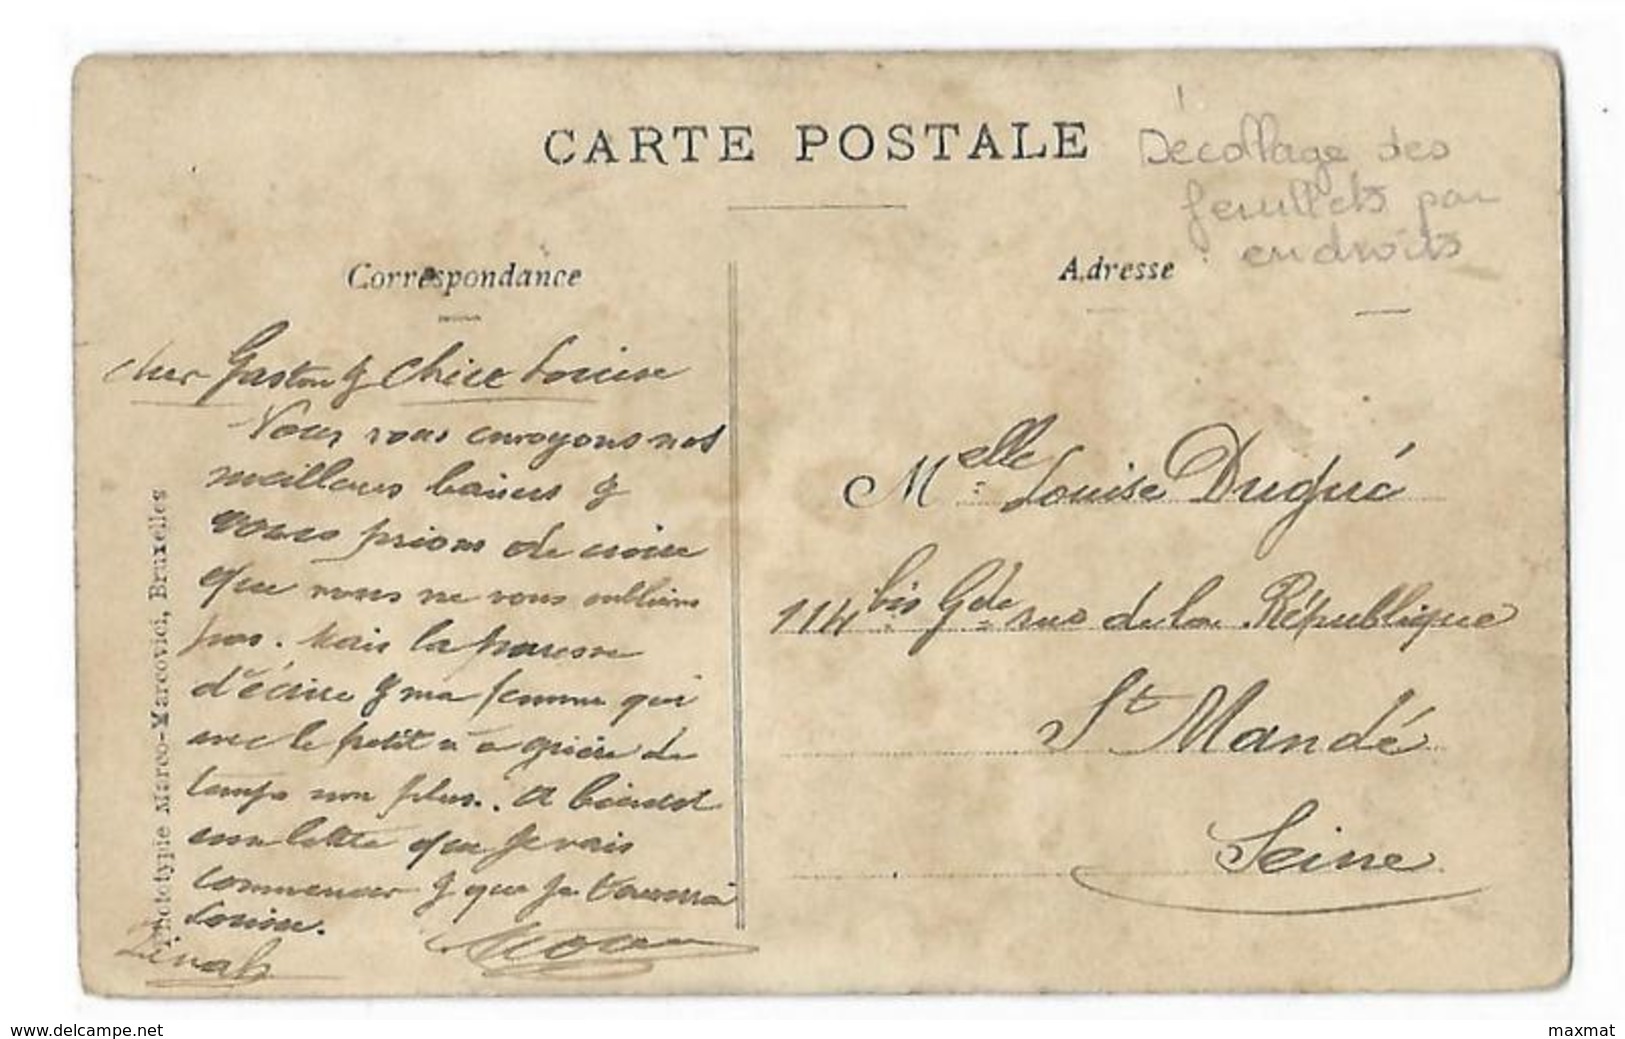 CARTE POSTALE
Décollage des
feuillets par
endroits
Correspondance
Adresse
cher Gaston & chère Louise
Nous vous envoyons nos
meilleurs baisers &
vous prions de croire
que nous ne vous oublions
pas. Mais la paresse
d'écrire & ma femme qui
avec le petit n'a guère de
temps non plus. A bientôt
une lettre que je vais
commencer & que je
Louise.
Phototypie Marco-Marcovici, Bruxelles
Melle Louise Dugué
114 bis Gde rue de la République
St Mandé
Seine
www.delcampe.net
maxmat